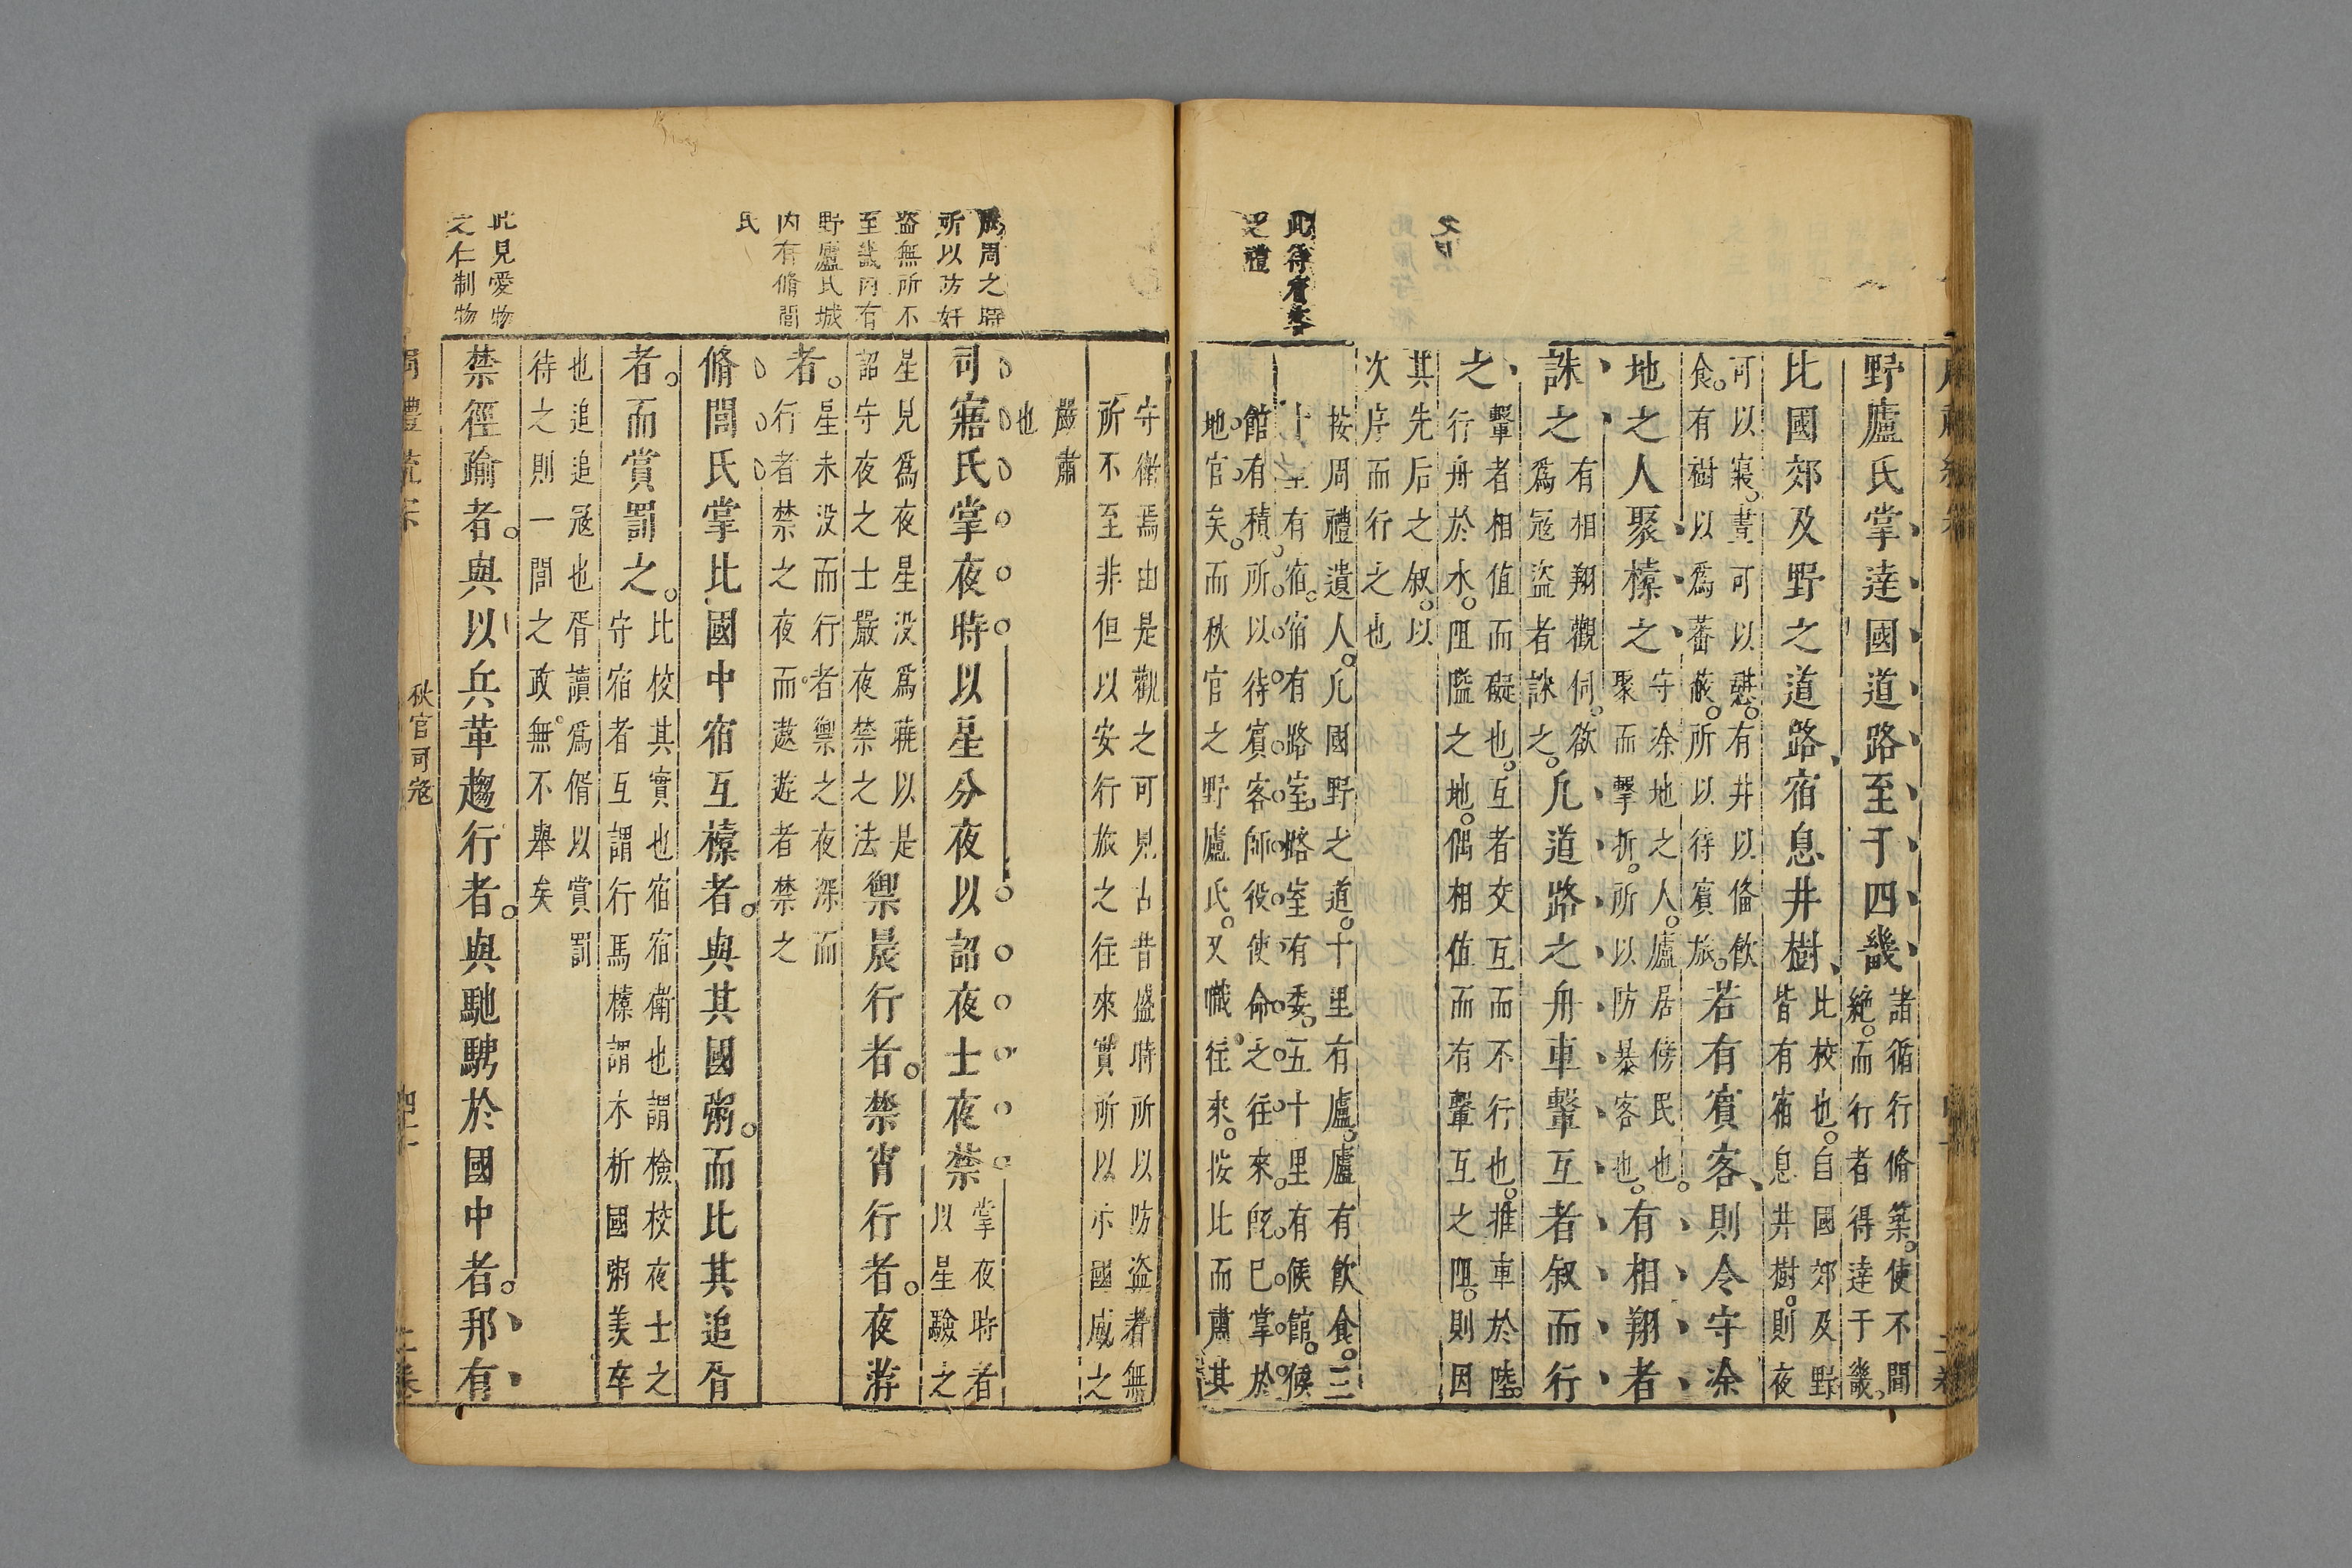 野廬氏掌達國道路至于四畿諸循行脩築使不間
絶而行者得達于畿
比國郊及野之道路宿息井樹比校也自國郊及野
皆有宿息井樹則夜
可以寢晝可以憇有井以備飲
食有樹以爲蕃蔽所以待賓旅若有賓客則令守涂
地之人聚㯓之守涂地之人廬居傍民也
聚而擊折所以防暴客也有相翔者
誅之有相翔觀伺欲
爲冦盜者誅之凡道路之舟車轚互者叙而行
之轚者相値而礙也互者交互而不行也推車於陸
行舟於水阻隘之地偶相値而有轚互之阻則因
其先后之叙以
次序而行之也
此待賓客
之禮
按周禮遺人凡國野之道十里有廬廬有飲食三
十里有宿宿有路室路室有委五十里有候館候
館有積所以待賓客師役使命之往來旣巳掌於
地官矣而秋官之野廬氏又幟往來按比而肅其
守衛焉由是觀之可見古昔盛時所以防盜者無
所不至非但以安行旅之往來實所以示國威之
嚴肅
也
周之
所以防奸
盜無所不
至畿内有
野廬氏城
内有脩閭
氏
司寤氏掌夜時以星分夜以詔夜士夜禁掌夜時者
以星驗之
星見爲夜星没爲曉以是
詔守夜之士嚴夜禁之法禦晨行者禁宵行者夜游
者星未没而行者禦之夜深而
行者禁之夜而遨遊者禁之
脩閭氏掌比國中宿互㯓者與其國粥而比其追胥
者而賞罰之比校其實也宿宿衛也謂檢校夜士之
守宿者互謂行馬㯓謂木析國粥羡卒
也追追冦也胥讀爲偦以賞罰
待之則一閭之政無不舉矣
此見愛物
之仁制物
禁徑踰者與以兵革趨行者與馳騁於國中者邦有
秋官司冦